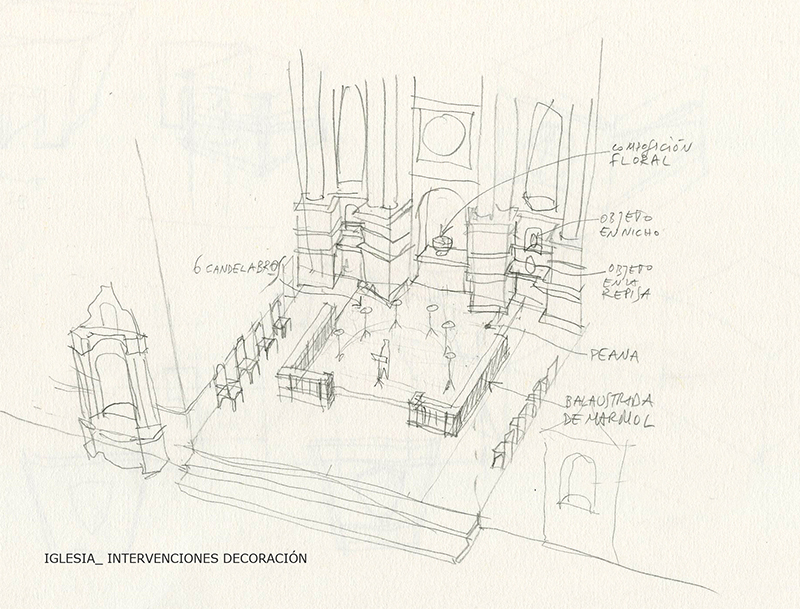 COMPOSICIÓN
FLORAL
OBJETO
EN NICHO
6 CANDELABROS
OBJETO
EN LA
REPISA
PEANA
BALAUSTRADA
DE MARMOL
IGLESIA_ INTERVENCIONES DECORACIÓN